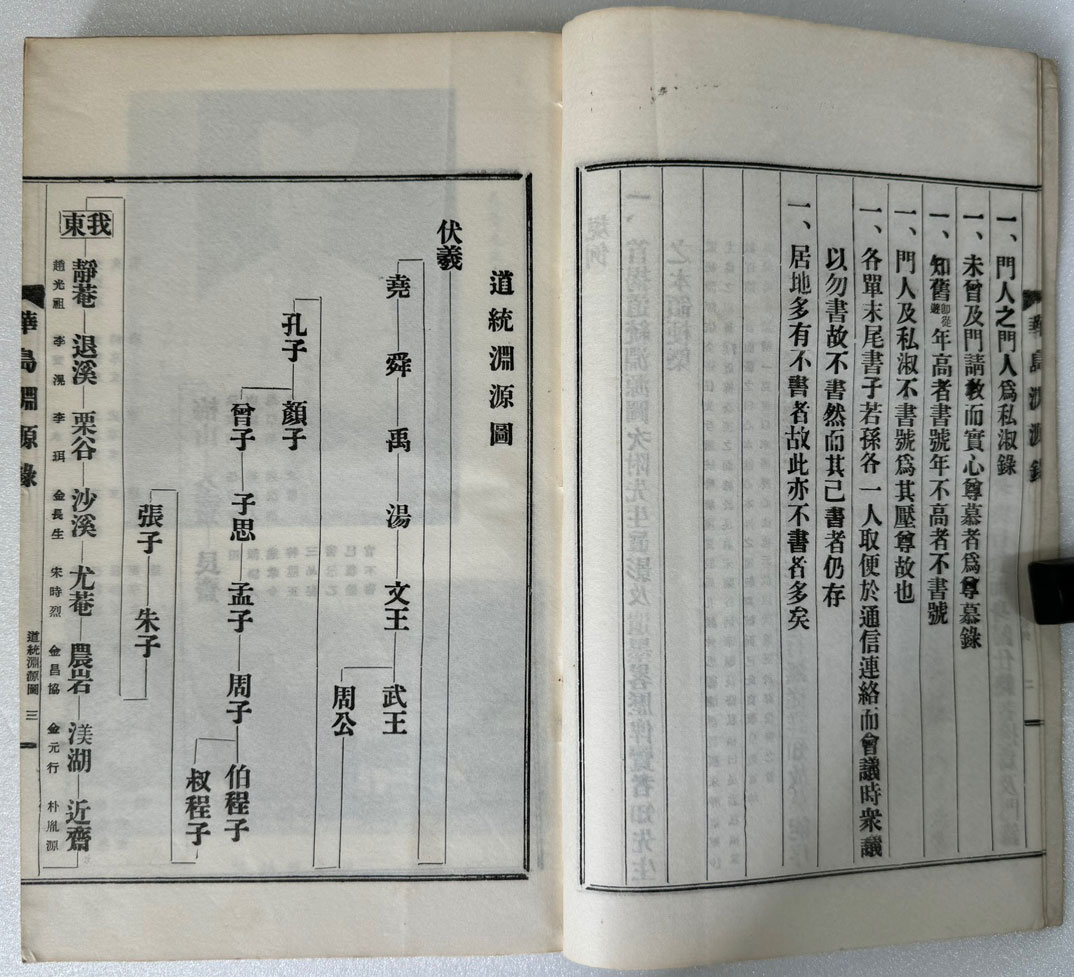 一、門人之門人爲私淑錄
一、未曾及門請敎而實心尊慕者爲尊慕錄
一、知舊卽從遊年高者書號年不高者不書號
一、門人及私淑不書號爲其壓尊故也
一、各單末尾書子若孫各一人取便於通信連絡而會議時衆議
以勿書故不書然而其已書者仍存
一、居地多有不書者故此亦不書者多矣
道統淵源圖
伏羲
堯 舜 禹 湯 文王 武王
周公
孔子 顏子
曾子 子思 孟子 周子 伯程子
叔程子
張子 朱子
我東
靜菴 退溪 栗谷 沙溪 尤菴 農岩 渼湖 近齋
趙光祖 李滉 李珥 金長生 宋時烈 金昌協 金元行 朴胤源
華島淵源錄
道統淵源圖 三